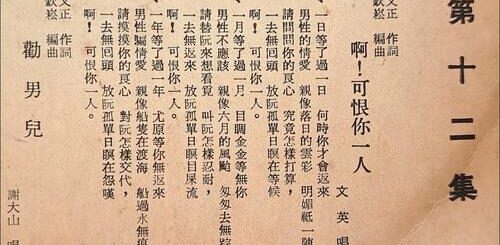 第十二集
啊!可恨你一人
文正 作詞
欽崧 編曲
文英 唱
一、一日等了過一日 何時你才會返來
男性的情愛 親像落日的雲彩 明媚祗一陣
請問問你的良心 究竟怎樣打算,
一去無回頭 放阮孤單日瞑在等候
啊! 可恨你一人。
一、一月等了過一月 目睭金金等無你
男性不應該 親像六月的風颱 匆匆去無踪
請替阮來想看覓 叫阮怎樣忍耐,
一去無返來 放阮孤單日瞑目屎流
啊! 可恨你一人。
一、一年等了過一年 尤原等你無返來
男性騙情愛 親像船隻在渡海 船過水無痕
請摸摸你的良心 對阮怎樣交代,
一去無回頭 放阮孤單日瞑在怨嘆
啊! 可恨你一人。
勸男兒
文正 作詞
欽崧 編曲
謝大山 唱